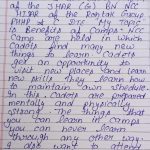 of the 3HAR (G) BN NCC
HISAR of the Rohtak Group
PHHP & C DTE My Topic
is Benefits of Camps NCC
Camp are held in which
Cadets find many new
things to learn Cadets
get an opportunity to
Visit new places and learn
new skills They learn how
to maintain own schedule
In this cadets are prepared
mentally and physically
strong The things that
you can learn in camps
you can never learn
through any other way
I also want to attend